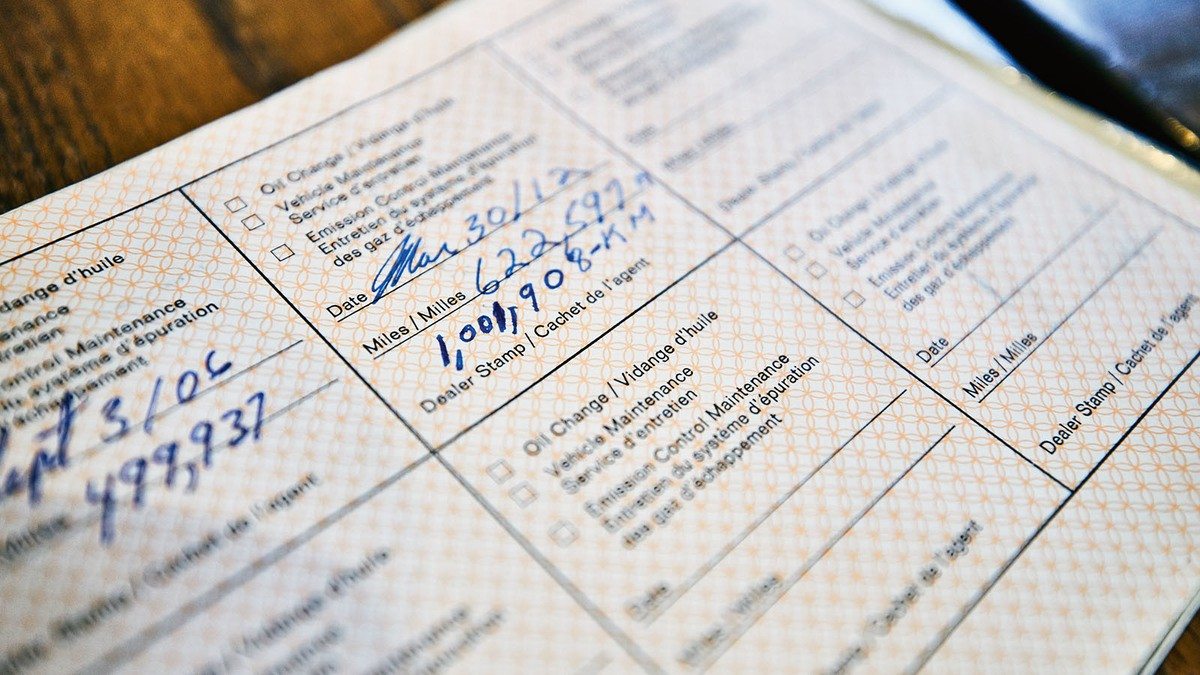 Oil Change / Vidange d'huile
Vehicle Maintenance
Service d'entretien
Emission Control Maintenance
Entretien du système d'épuration
des gaz d'échappement
Date Mar 30/12
Miles / Milles 622,597 m
1,001,908-KM
Dealer Stamp / Cachet de l'agent
Vidange d'huile
Maintenance
d'entretien
Control Maintenance
du système d'épuration
d'échappement
Sept 3/06
499,937
Cachet de l'agent
Vidange d'huile
Oil Change / Vidange d'huile
Vehicle Maintenance
Service d'entretien
Emission Control Maintenance
Entretien du système d'épuration
des gaz d'échappement
Date
Miles / Milles
Cachet de l'agent
Oil Change / Vidange d'huile
Vehicle Maintenance
Service d'entretien
Emission Control Maintenance
Entretien du système d'épuration
des gaz d'échappement
Date
Miles / Milles
Dealer Stamp / Cachet de l'agent